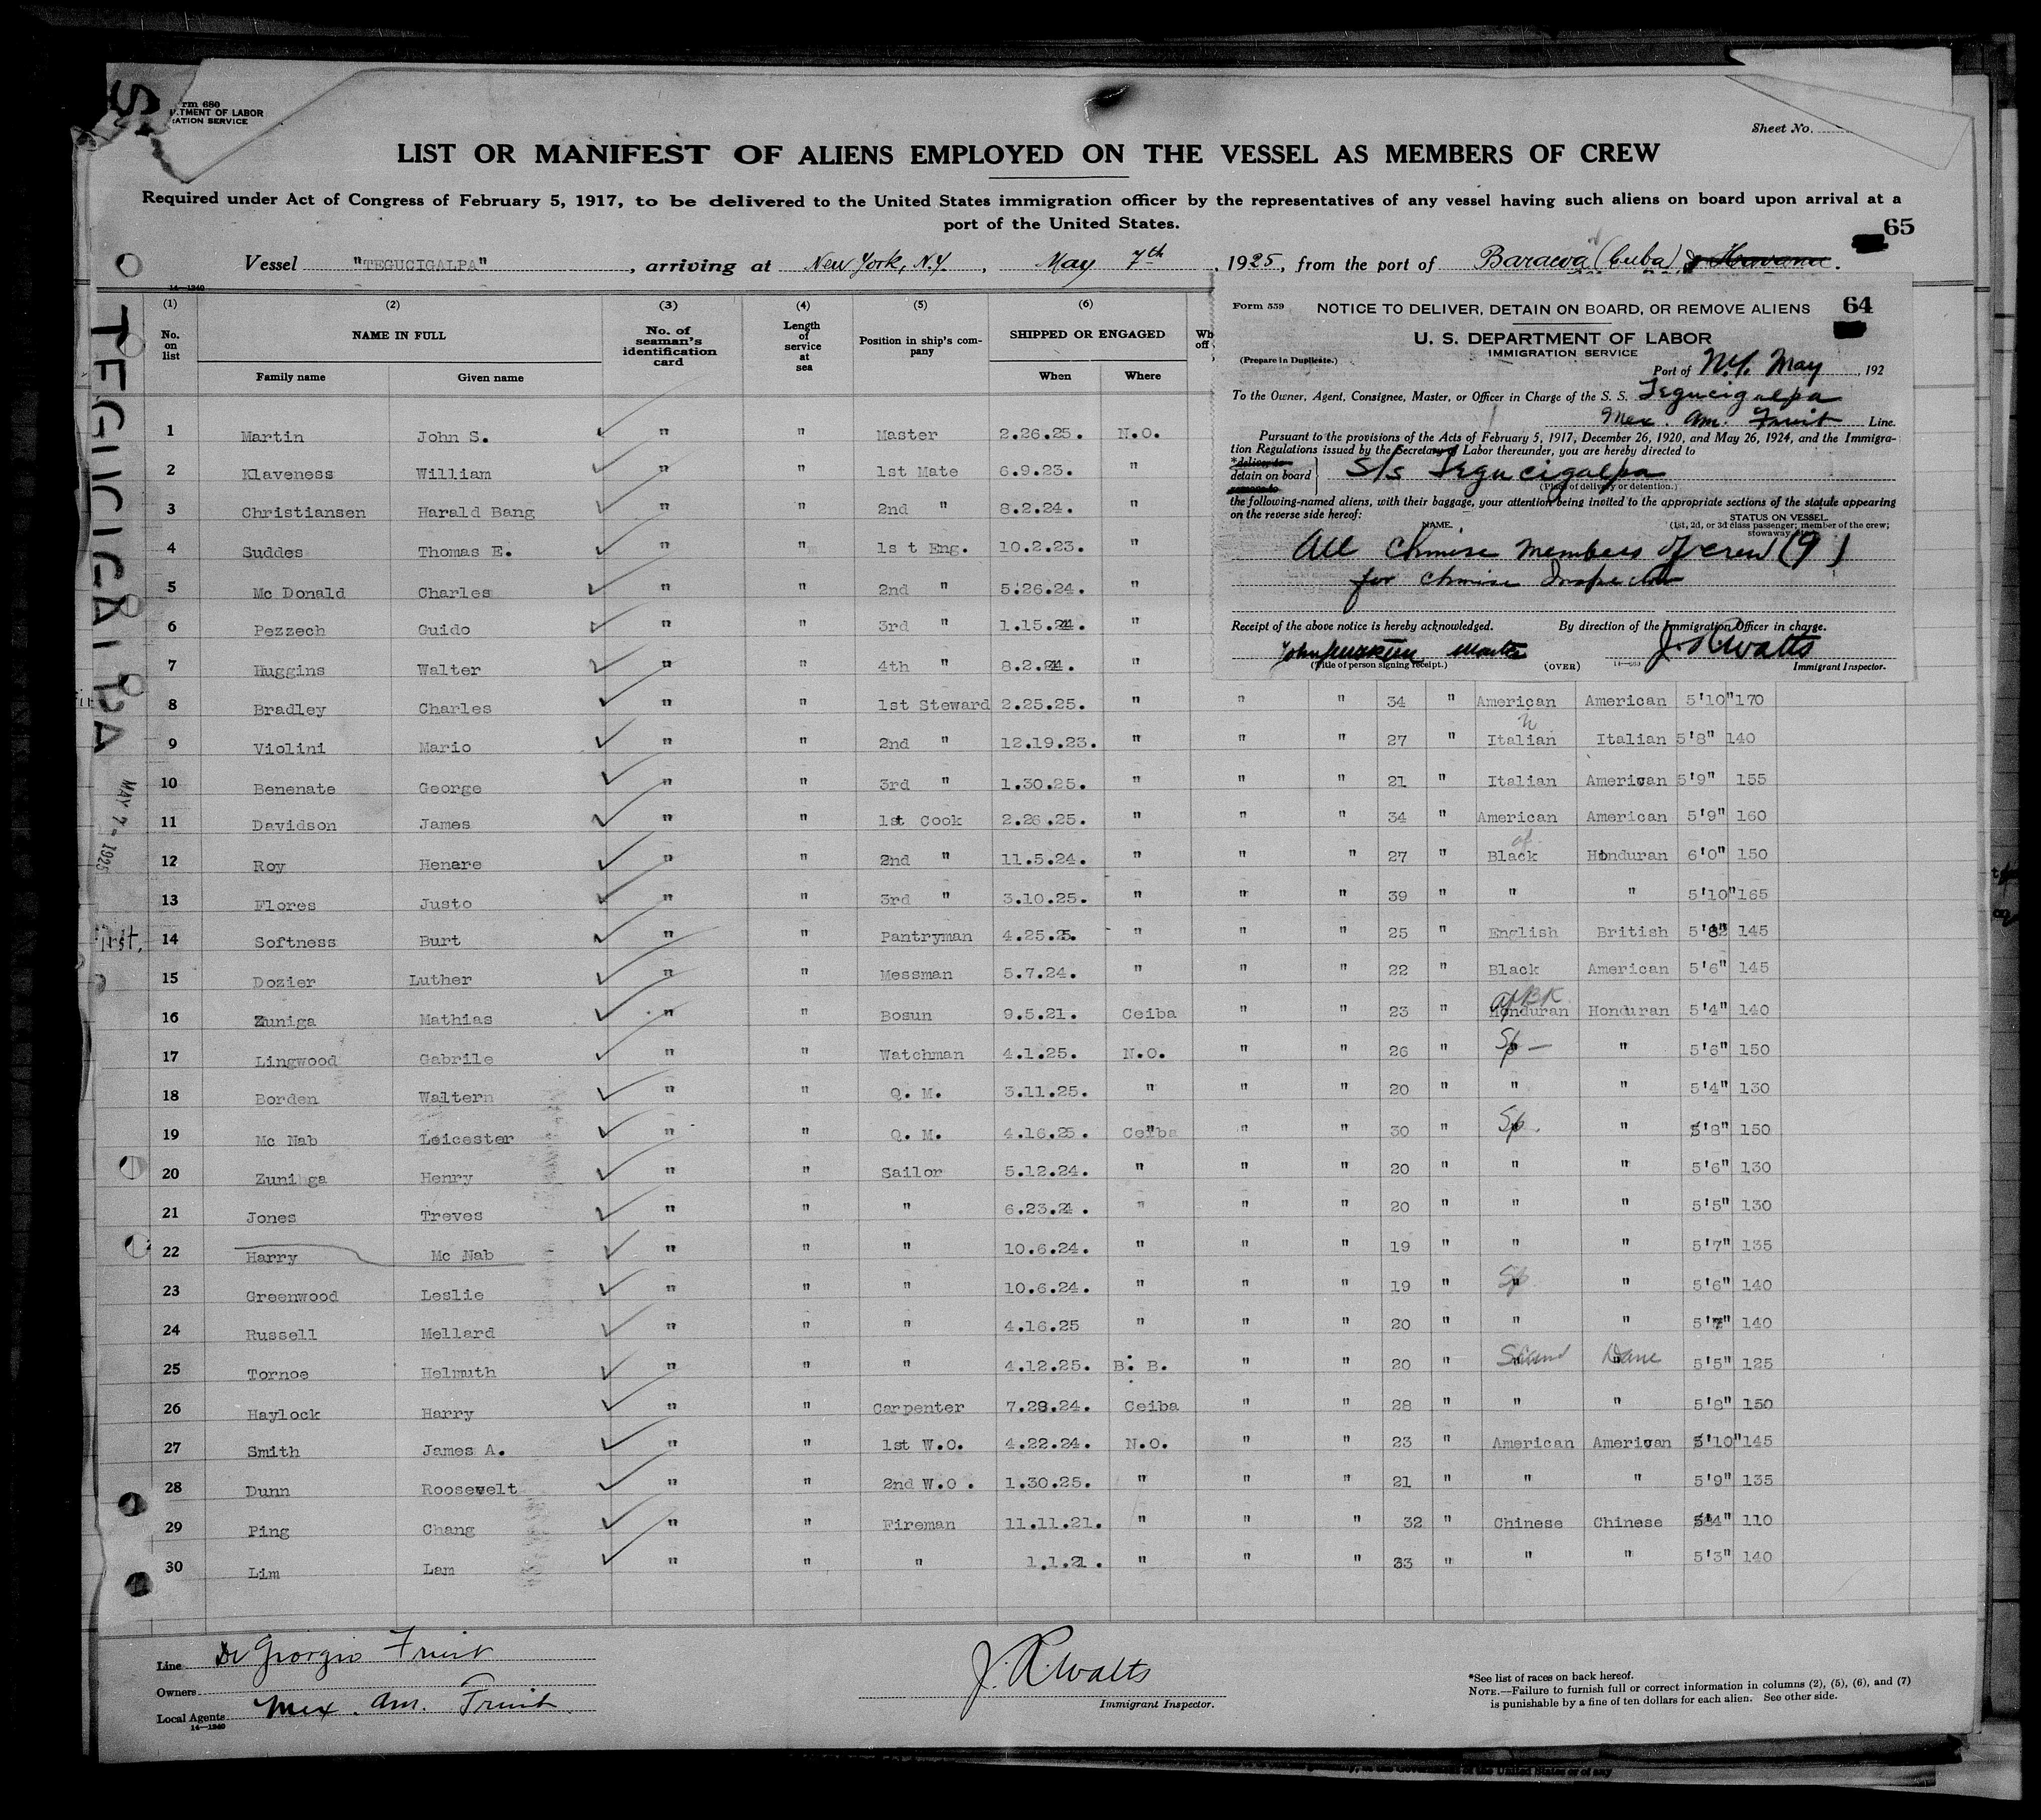 rm 680
TMENT OF LABOR
ATION SERVICE
Sheet No.
LIST OR MANIFEST OF ALIENS EMPLOYED ON THE VESSEL AS MEMBERS OF CREW
Required under Act of Congress of February 5, 1917, to be delivered to the United States immigration officer by the representatives of any vessel having such aliens on board upon arrival at a
port of the United States.
65
Vessel "TEGUCIGALPA", arriving at New York, N.Y., May 7th, 1925, from the port of Baracoa (Cuba) & Havana.
14—1240
TEGUCIGALPA
MAY 7- 1925
First.
(1) (2) (3) (4) (5) (6)
No. on list NAME IN FULL No. of seaman's identification card Length of service at sea Position in ship's company SHIPPED OR ENGAGED
Family name Given name When Where
Form 559 NOTICE TO DELIVER, DETAIN ON BOARD, OR REMOVE ALIENS 64
U. S. DEPARTMENT OF LABOR
IMMIGRATION SERVICE
(Prepare in Duplicate.)
Port of N.Y. May , 192
To the Owner, Agent, Consignee, Master, or Officer in Charge of the S. S. Tegucigalpa
Mex. Am. Fruit Line.
Pursuant to the provisions of the Acts of February 5, 1917, December 26, 1920, and May 26, 1924, and the Immigra-
tion Regulations issued by the Secretary of Labor thereunder, you are hereby directed to
*deliver to
detain on board S/S Tegucigalpa
remove to
(Place of delivery or detention.)
the following-named aliens, with their baggage, your attention being invited to the appropriate sections of the statute appearing
on the reverse side hereof:
NAME. STATUS ON VESSEL.
(1st, 2d, or 3d class passenger; member of the crew;
stowaway, etc.)
All Chinese members of crew (9)
for Chinese Inspector
Receipt of the above notice is hereby acknowledged. By direction of the Immigration Officer in charge.
John Martin Master J. R. Watts
(Title of person signing receipt.) (OVER) Immigrant Inspector.
1 Martin John S. " " Master 2.26.25. N.O.
2 Klaveness William " " 1st Mate 6.9.23. "
3 Christiansen Harald Bang " " 2nd " 8.2.24. "
4 Suddes Thomas E. " " 1s t Eng. 10.2.23. "
5 Mc Donald Charles " " 2nd " 5.26.24. "
6 Pezzech Guido " " 3rd " 1.15.24. "
7 Huggins Walter " " 4th " 8.2.24. "
8 Bradley Charles " " 1st Steward 2.25.25. " " " 34 " American American 5'10" 170
9 Violini Mario " " 2nd " 12.19.23. " " " 27 " Italian N Italian 5'8" 140
10 Benenate George " " 3rd " 1.30.25. " " " 21 " Italian American 5'9" 155
11 Davidson James " " 1st Cook 2.26.25. " " " 34 " American American 5'9" 160
12 Roy Henare " " 2nd " 11.5.24. " " " 27 " Black af. Honduran 6'0" 150
13 Flores Justo " " 3rd " 3.10.25. " " " 39 " " " 5'10" 165
14 Softness Burt " " Pantryman 4.25.25. " " " 25 " English British 5'8" 145
15 Dozier Luther " " Messman 5.7.24. " " 22 " Black American 5'6" 145
16 Zuniga Mathias " " Bosun 9.5.21. Ceiba " " 23 " Honduran af BK Honduran 5'4" 140
17 Lingwood Gabrile " " Watchman 4.1.25. N.O. " " 26 " Sp — " 5'6" 150
18 Borden Waltern " " Q. M. 3.11.25. " " " 20 " " " 5'4" 130
19 Mc Nab Leicester " " Q. M. 4.16.25. Ceiba " " 30 " Sp. " 5'8" 150
20 Zuniga Henry " " Sailor 5.12.24. " " " 20 " " " 5'6" 130
21 Jones Treves " " " 6.23.24. " " " 20 " " " 5'5" 130
22 Harry Mc Nab " " " 10.6.24. " " " 19 " " " 5'7" 135
23 Greenwood Leslie " " " 10.6.24. " " " 19 " Sp " 5'6" 140
24 Russell Mellard " " " 4.16.25 " " " 20 " " " 5'7" 140
25 Tornoe Helmuth " " " 4.12.25. B. B. " " 20 " Scand Dane 5'5" 125
26 Haylock Harry " " Carpenter 7.28.24. Ceiba " " 28 " " " 5'8" 150
27 Smith James A. " " 1st W.O. 4.22.24. N.O. " " 23 " American American 5'10" 145
28 Dunn Roosevelt " " 2nd W.O. 1.30.25. " " " 21 " " " 5'9" 135
29 Ping Chang " " Fireman 11.11.21. " " " 32 " Chinese Chinese 5'4" 110
30 Lim Lam " " " 1.1.21. " " " 33 " " " 5'3" 140
Line Di Giorgio Fruit
Owners
Local Agents Mex. Am. Fruit
14—1240
J. R. Watts
Immigrant Inspector.
*See list of races on back hereof.
NOTE.—Failure to furnish full or correct information in columns (2), (5), (6), and (7)
is punishable by a fine of ten dollars for each alien. See other side.